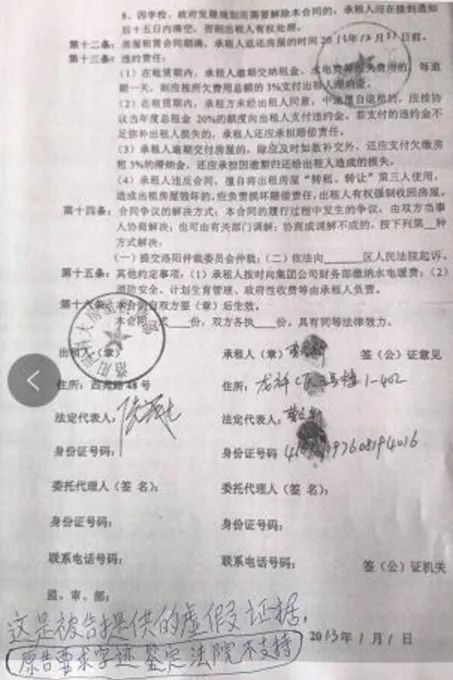 8、因学校、政府发展规划而需要解除本合同的，承租人应在接到通知
后十五日内清空，否则出租人有权处理。
第十二条：房屋租赁合同期满，承租人返还房屋的时间2013年12月31日前。
第十三条：违约责任：
（1）在租赁期内，承租人逾期交纳租金、水电费等相关费用的，每逾
期一天，则应按所欠费用总额的3%支付出租人滞纳金。
（2）在租赁期内，承租方未经出租人同意，中途擅自退租的，应按协
议当年度总租金 20%的额度向出租人支付违约金，若支付的违约金不
足弥补出租人损失的，承租人还应承担赔偿责任。
（3）承租人逾期交付房屋的，除应及时如数补交外，还应支付欠缴房
租3%的滞纳金，还应承担因逾期归还给出租人造成的损失。
（4）承租人违反合同，擅自将出租房屋"转租、转让"第三人使用，
造成出租房屋毁坏的，应负责损坏赔偿责任，出租人有权强制收回房屋。
第十四条：合同争议的解决方式：本合同的履行过程中发生的争议，由双方当事
人协商解决；也可由有关部门调解；协商或调解不成的，按下列第__种
方式解决：
（一）提交洛阳仲裁委员会仲裁；（二）依法向______区人民法院起诉。
第十五条：其他约定事项：（1）承租人按时向集团公司财务部缴纳水电暖费；（2）
消防安全、计划生育管理、政府性收费等由承租人负责。
第十六条：本合同自双方签（章）后生效。
本合同 式 份，双方各执 份，具有同等法律效力。
出租人（章） 承租人（章） 签（公）证意见
住所：西苑路48号 住所：龙祥 号楼1-402
法定代表人： 法定代表人：
身份证号码： 身份证号码
委托代理人（签 名）： 委托代理人（签 名）：
身份证号码： 身份证号码：
联系电话号码： 联系电话号码： 签（公）证机关
监、审、部：
2013年1月1日
这是被告提供的虚假证据，
原告要求字迹鉴定法院不支持